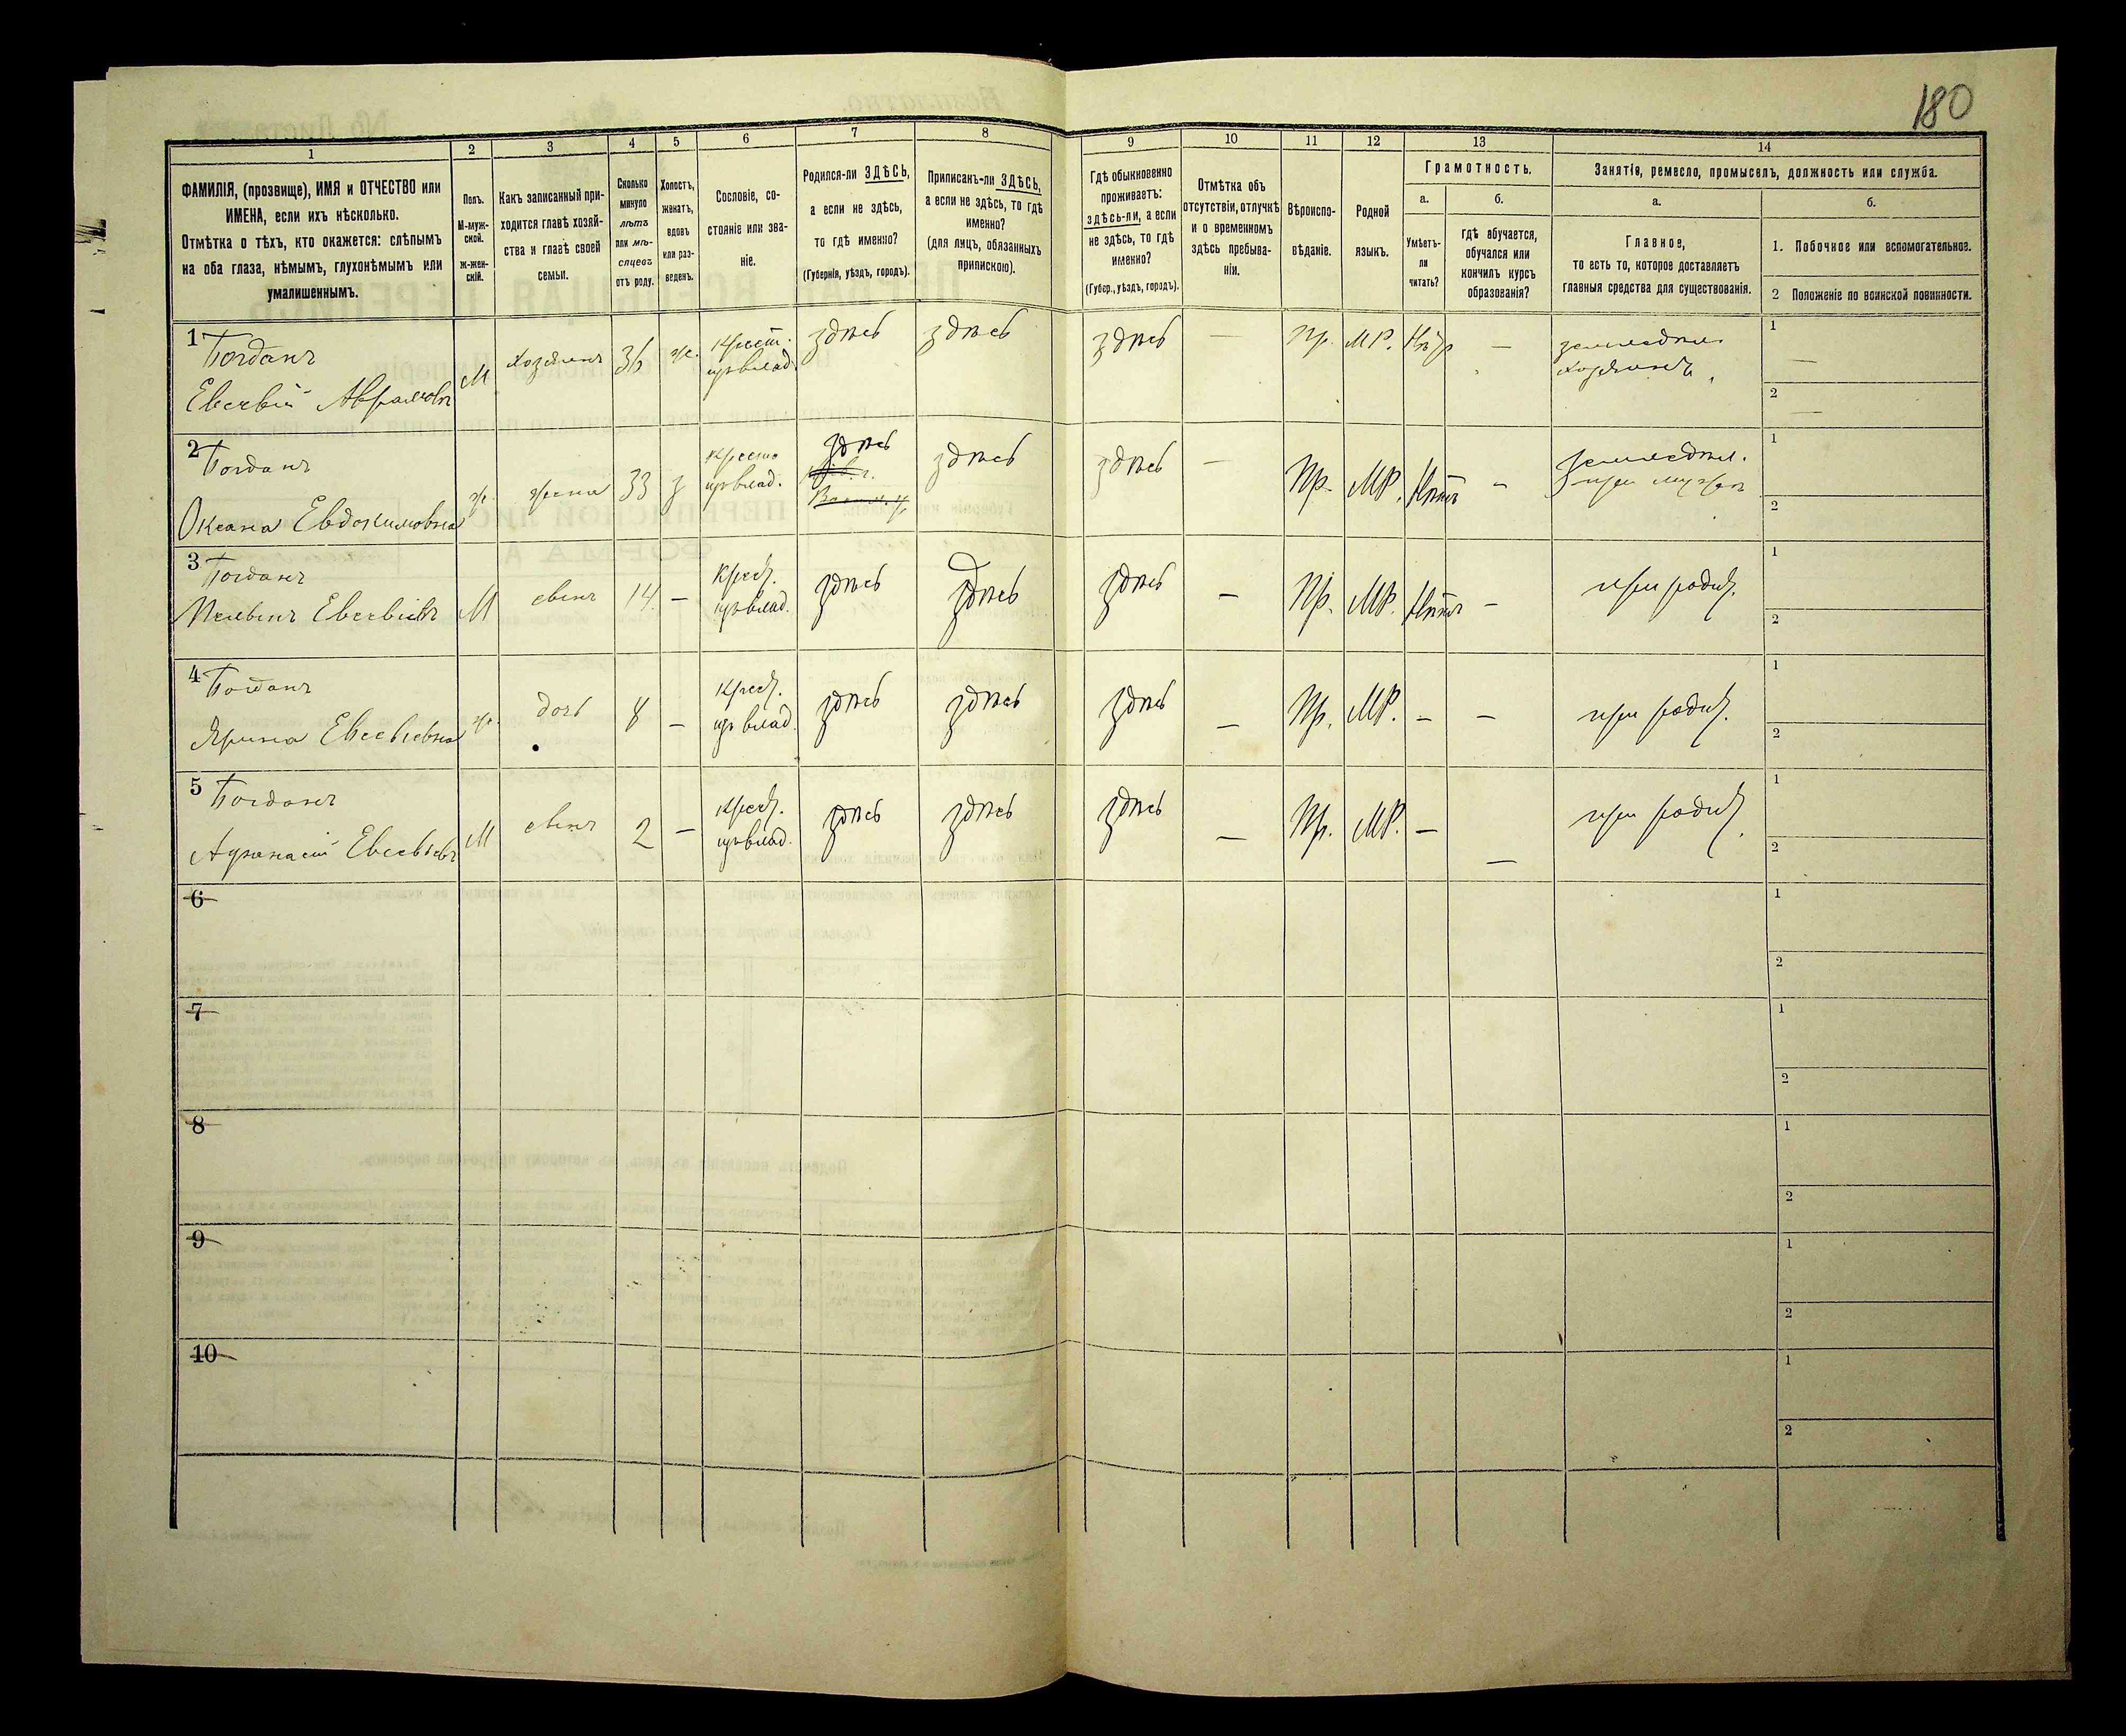 180
1
2
3
4
5
6
7
8
9
10
11
12
13
14
ФАМИЛІЯ, (прозвище), ИМЯ и ОТЧЕСТВО или
ИМЕНА, если ихъ нѣсколько.
Отмѣтка о тѣхъ, кто окажется: слѣпымъ
на оба глаза, нѣмымъ, глухонѣмымъ или
умалишеннымъ.
Полъ.
М-муж-
ской.
ж-жен-
скій.
Какъ записанный при-
ходится главѣ хозяй-
ства и главѣ своей
семьи.
Сколько
минуло
лѣтъ
или мѣ-
сяцевъ
отъ роду.
Холостъ,
женатъ,
вдовъ
или раз-
веденъ.
Сословіе, со-
стояніе или зва-
ніе.
Родился-ли ЗДѢСЬ,
а если не здѣсь,
то гдѣ именно?
(Губернія, уѣздъ, городъ).
Приписанъ-ли ЗДѢСЬ,
а если не здѣсь, то гдѣ
именно?
(для лицъ, обязанныхъ
припискою).
Гдѣ обыкновенно
проживаетъ:
здѣсь-ли, а если
не здѣсь, то гдѣ
именно?
(Губер., уѣздъ, городъ).
Отмѣтка объ
отсутствіи, отлучкѣ
и о временномъ
здѣсь пребыва-
ніи.
Вѣроиспо-
вѣданіе.
Родной
языкъ.
Грамотность.
а.
Умѣетъ-
ли
читать?
б.
гдѣ обучается,
обучался или
кончилъ курсъ
образованія?
Занятіе, ремесло, промыселъ, должность или служба.
а.
Главное,
то есть то, которое доставляетъ
главныя средства для существованія.
б.
1. Побочное или вспомогательное.
2 Положеніе по воинской повинности.
1
Богданъ
Евсевій Аврамовъ
М
хозяинъ
36
ж.
крест.
изъ влад.
здѣсь
здѣсь
здѣсь
—
Пр.
МР.
Нѣтъ
—
земледѣл.
хозяинъ
1
—
2
—
2
Богданъ
Оксана Евдокимовна
ж.
жена
33
з
крест
изъ влад.
здѣсь
здѣсь
здѣсь
—
Пр.
МР.
Нѣтъ
—
земледѣл.
при мужѣ
1
2
3
Богданъ
Евсевіевъ
М
сынъ
14
—
крест.
изъ влад.
здѣсь
здѣсь
здѣсь
—
Пр.
МР.
Нѣтъ
—
при родит.
1
2
4
Богданъ
Ярина Евсевіевна
ж.
дочь
8
—
крест.
изъ влад.
здѣсь
здѣсь
здѣсь
—
Пр.
МР.
—
—
при родит.
1
2
5
Богданъ
Афанасій Евсевіевъ
М
сынъ
2
—
крест.
изъ влад.
здѣсь
здѣсь
здѣсь
—
Пр.
МР.
—
—
при родит.
1
2
6
1
2
7
1
2
8
1
2
9
1
2
10
1
2